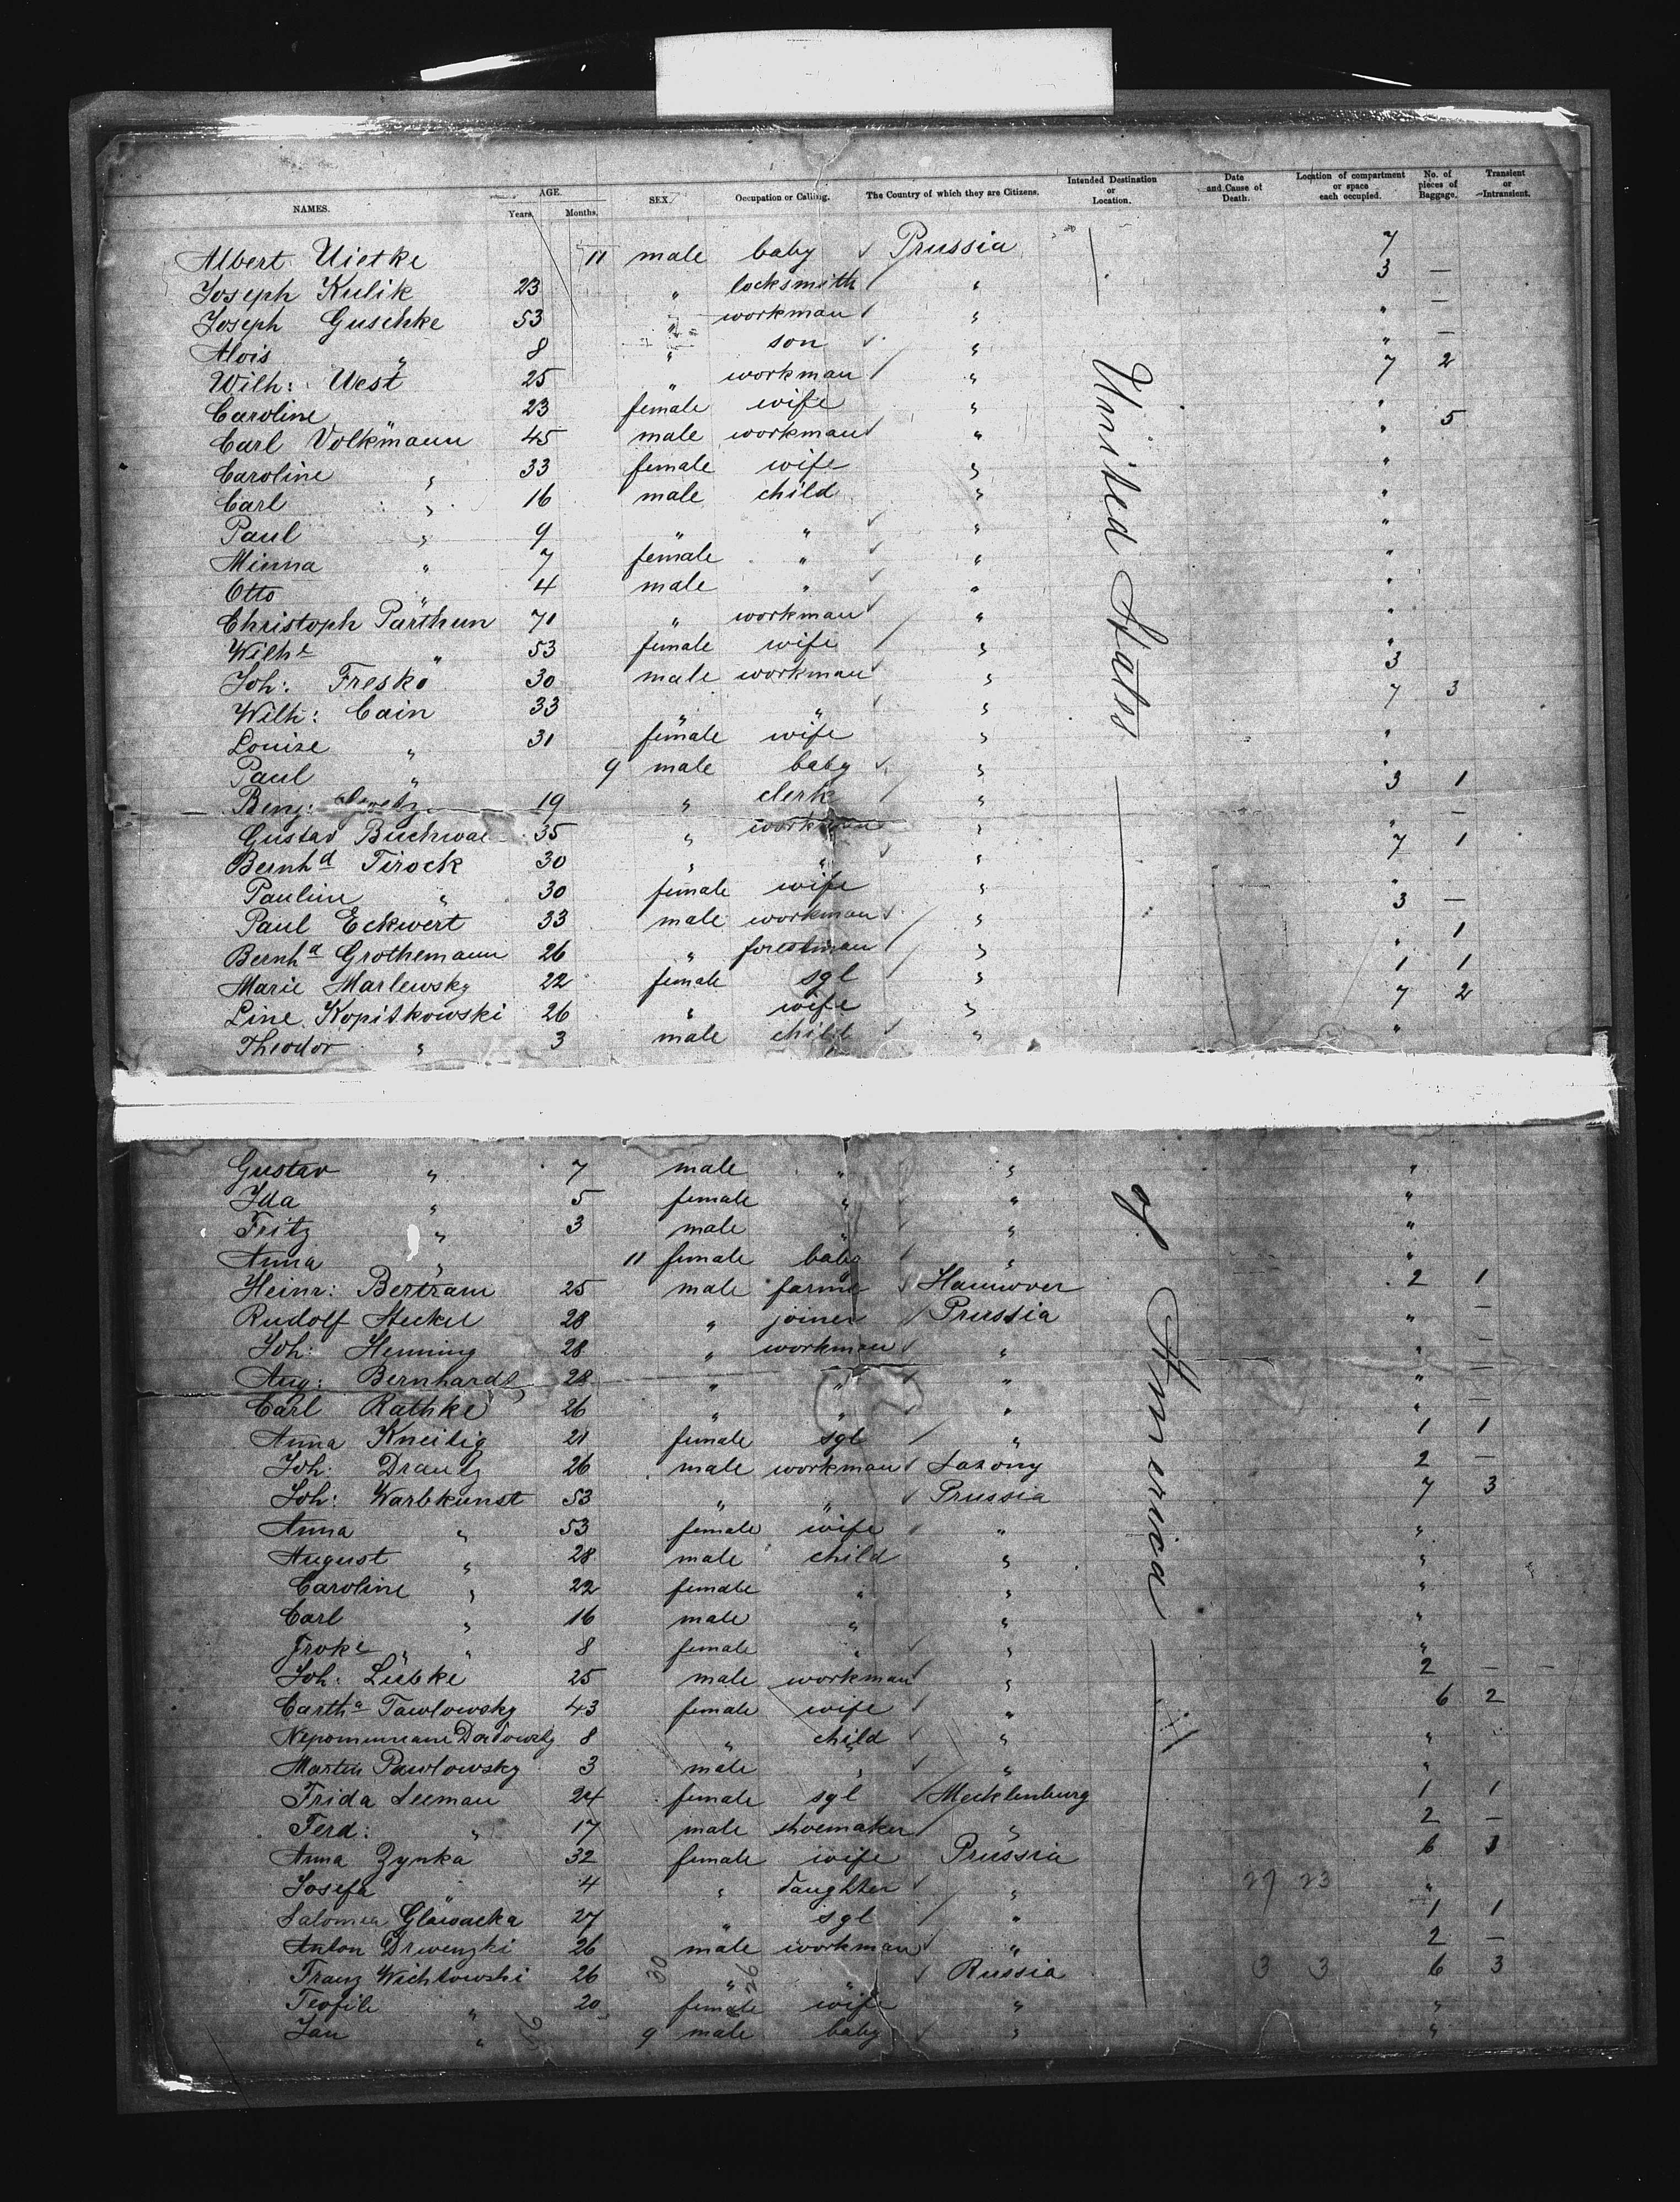 NAMES. AGE. Years. Months. SEX. Occupation or Calling. The Country of which they are Citizens. Intended Destination or Location. Date and Cause of Death. Location of compartment or space each occupied. No. of pieces of Baggage. Transient or Intransient.
Albert Uietke 11 male baby Prussia 7
Joseph Kulik 23 " locksmith " 3 —
Joseph Guschke 53 " workman " " —
Alois " 8 " son " " —
Wilh: West 25 " workman " 7 2
Caroline 23 female wife " "
Carl Volkmann 45 male workman " " 5
Caroline " 33 female wife " "
Carl " 16 male child " "
Paul " 9 " " " "
Minna " 7 female " " "
Otto " 4 male " " "
Christoph Parthun 71 " workman " "
Wilhe " 53 female wife " "
Joh: Fresko 30 male workman " 3
Wilh: Cain 33 " " " 7 3
Louise " 31 female wife " "
Paul " 9 male baby " "
Benj: 19 " clerk " 3 1
Gustav Buchwal 35 " workman " " —
Bernhd Tirock 30 " " " 7 1
Pauline " 30 female wife " "
Paul Eckwert 33 male workman " 3 —
Bernhd Grothemann 26 " forestman " " 1
Marie Marlewsky 22 female sgl " 1 1
Line Kopitkowski 26 " wife " 7 2
Theodor " 3 male child " "
United States
Gustav " 7 male " " "
Ida " 5 female " " "
Fritz " 3 male " " "
Anna " 11 female baby " "
Heinr: Bertram 25 male farmer Hannover 2 1
Rudolf Steckel 28 " joiner Prussia " —
Joh: Henning 28 " workman " " —
Aug: Bernhardt 28 " " " " —
Carl Rathke 26 " " " " —
Anna Kneilig 21 female sgl " 1 1
Joh: Drautz 26 male workman Saxony 2 —
Joh: Warbkunst 53 " " Prussia 7 3
Anna " 53 female wife " "
August " 28 male child " "
Caroline " 22 female " " "
Carl " 16 male " " "
" " 8 female " " "
Joh: Lübke 25 male workman " 2 —
Cartha Pawlowsky 43 female wife " 6 2
8 " child " "
Martin Pawlowsky 3 male " " "
Frida Seeman 24 female sgl Mecklenburg 1 1
Ferd: " 17 male shoemaker " 2 —
Anna Zynka 32 female wife Prussia 6 3
Josefa 4 " daughter " "
Salomea Glowacka 27 " sgl " 1 1
Anton Drwenzki 26 male workman " 2 —
Franz Wichlowski 26 " " Russia 6 3
Teofile " 20 female wife " "
Jan " 9 male baby " "
of America
27 23
3 3
30
26
56